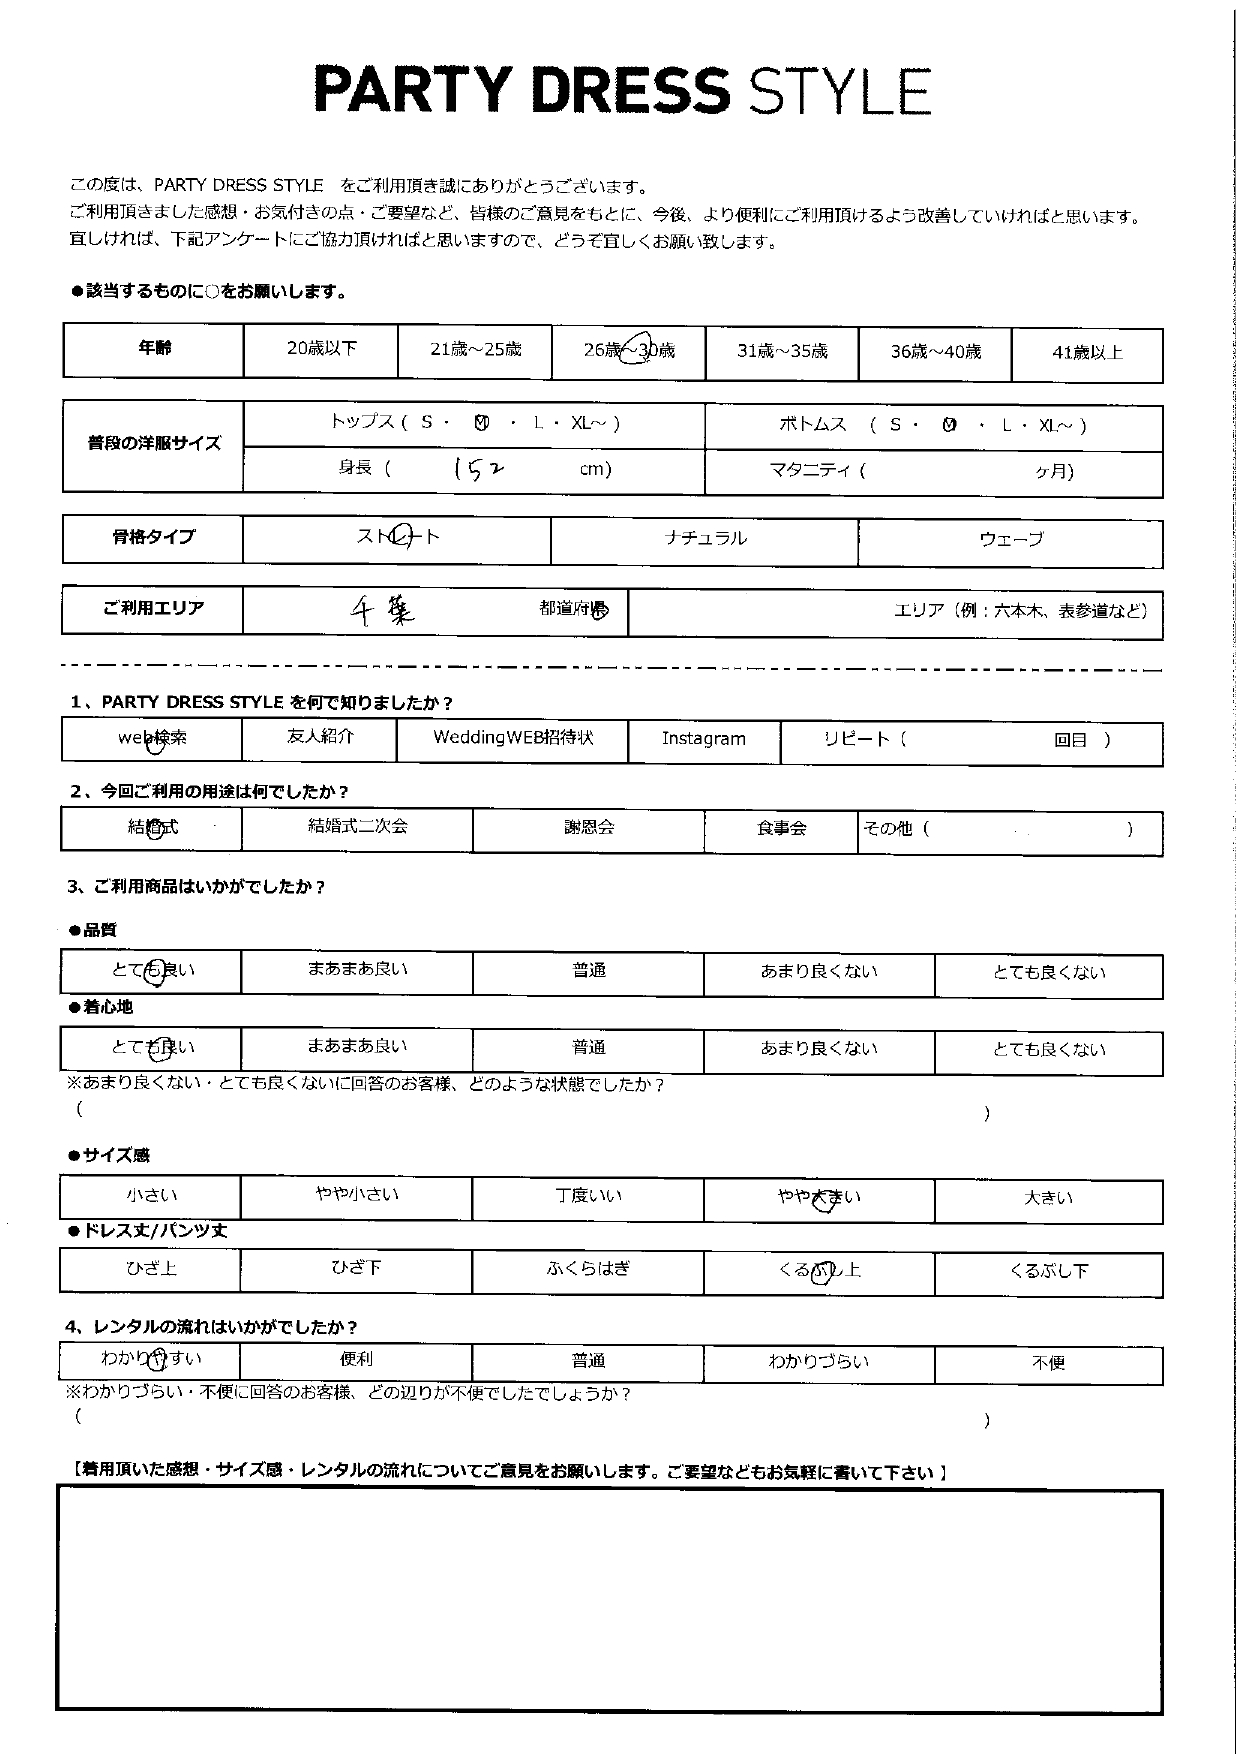 PARTY DRESS STYLE
この度は、PARTY DRESS STYLE をご利用頂き誠にありがとうございます。
ご利用頂きました感想・お気付きの点・ご要望など、皆様のご意見をもとに、今後、より便利にご利用頂けるよう改善していければと思います。
宜しければ、下記アンケートにご協力頂ければと思いますので、どうぞ宜しくお願い致します。
●該当するものに○をお願いします。
年齢 20歳以下 21歳～25歳 26歳～30歳 31歳～35歳 36歳～40歳 41歳以上
普段の洋服サイズ トップス ( S ・ M ・ L ・ XL～ ) ボトムス ( S ・ M ・ L ・ XL～ )
身長 ( 152 cm) マタニティ ( ヶ月)
骨格タイプ ストレート ナチュラル ウェーブ
ご利用エリア 千葉 都道府県 エリア（例：六本木、表参道など）
1、PARTY DRESS STYLE を何で知りましたか？
web検索 友人紹介 WeddingWEB招待状 Instagram リピート ( 回目 )
2、今回ご利用の用途は何でしたか？
結婚式 結婚式二次会 謝恩会 食事会 その他 ( )
3、ご利用商品はいかがでしたか？
●品質
とても良い まあまあ良い 普通 あまり良くない とても良くない
●着心地
とても良い まあまあ良い 普通 あまり良くない とても良くない
※あまり良くない・とても良くないに回答のお客様、どのような状態でしたか？
( )
●サイズ感
小さい やや小さい 丁度いい やや大きい 大きい
●ドレス丈/パンツ丈
ひざ上 ひざ下 ふくらはぎ くるぶし上 くるぶし下
4、レンタルの流れはいかがでしたか？
わかりやすい 便利 普通 わかりづらい 不便
※わかりづらい・不便に回答のお客様、どの辺りが不便でしたでしょうか？
( )
【着用頂いた感想・サイズ感・レンタルの流れについてご意見をお願いします。ご要望などもお気軽に書いて下さい】